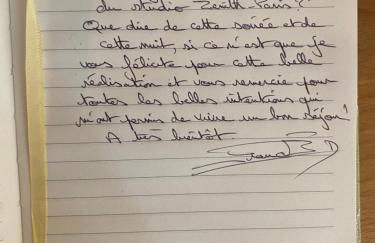 du studio Zénith Paris ?
Que dire de cette soirée et de
cette nuit, si ce n'est que je
vous félicite pour cette belle
réalisation et vous remercie pour
toutes les belles intentions qui
m'ont permis de vivre un bon séjour !
A très bientôt.